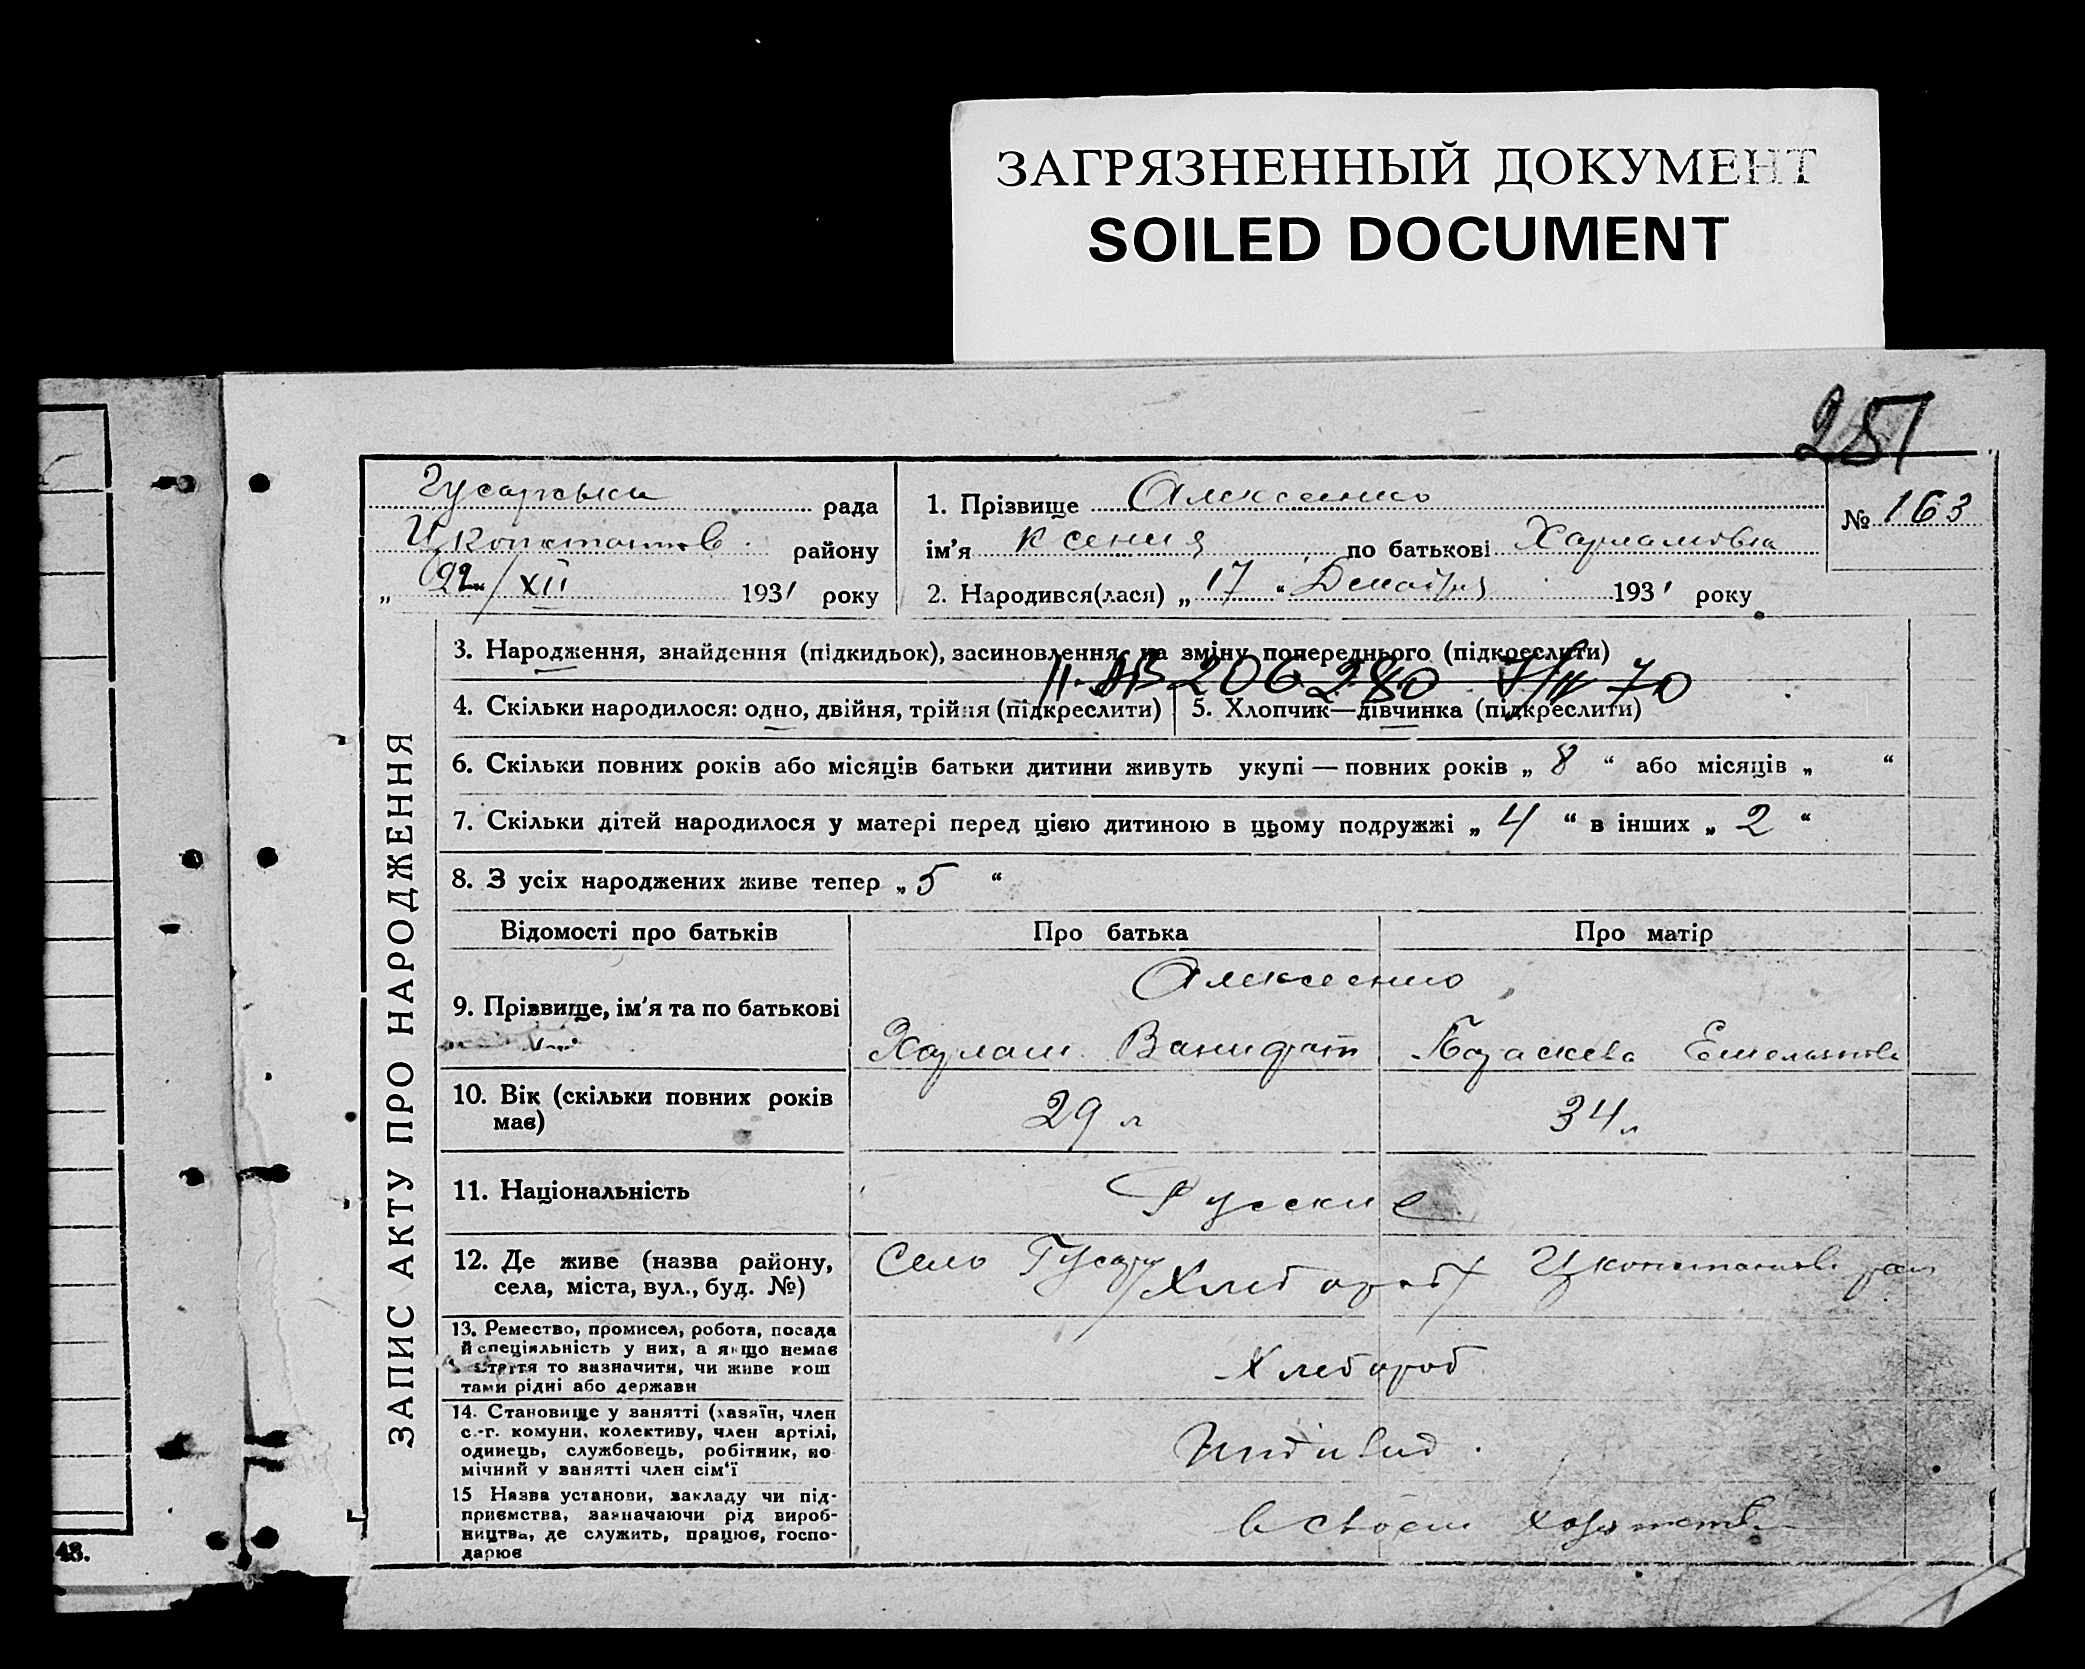 ЗАГРЯЗНЕННЫЙ ДОКУМЕНТ
SOILED DOCUMENT
281
Гусарська рада
Цконстантов. району
„ 22/XII 1931 року
1. Прізвище Алексеенко
ім'я Ксения по батькові Харламовна
2. Народився(лася) „ 17 “ Декабря 1931 року
№ 163
ЗАПИС АКТУ ПРО НАРОДЖЕННЯ
3. Народження, знайдення (підкидьок), засиновлення, на зміну попереднього (підкреслити)
206280 70
4. Скільки народилося: одно, двійня, трійня (підкреслити) 5. Хлопчик—дівчинка (підкреслити)
6. Скільки повних років або місяців батьки дитини живуть укупі — повних років „ 8 “ або місяців „ “
7. Скільки дітей народилося у матері перед цією дитиною в цьому подружжі „ 4 “ в інших „ 2 “
8. З усіх народжених живе тепер „ 5 “
Відомості про батьків Про батька Про матір
Алексеенко
9. Прізвище, ім'я та по батькові
Харлам Ванифат Параскева Емельянов
10. Вік (скільки повних років має)
29 л 34 л
11. Національність Русские
12. Де живе (назва району,
села, міста, вул., буд. №)
Село Гусар /Хлебороб/ Цконстантов ран
13. Ремество, промисел, робота, посада
й спеціяльність у них, а якщо немає
заняття то зазначити, чи живе кош
тами рідні або держави
Хлебороб
14. Становище у занятті (хазяїн, член
с.-г. комуни, колективу, член артілі,
одинець, службовець, робітник, по
мічний у занятті член сім'ї
Индивид.
15 Назва установи, закладу чи під-
приємства, зазначаючи рід вироб-
ництва, де служить, працює, госпо-
дарює
в своем хозяйстве
43.